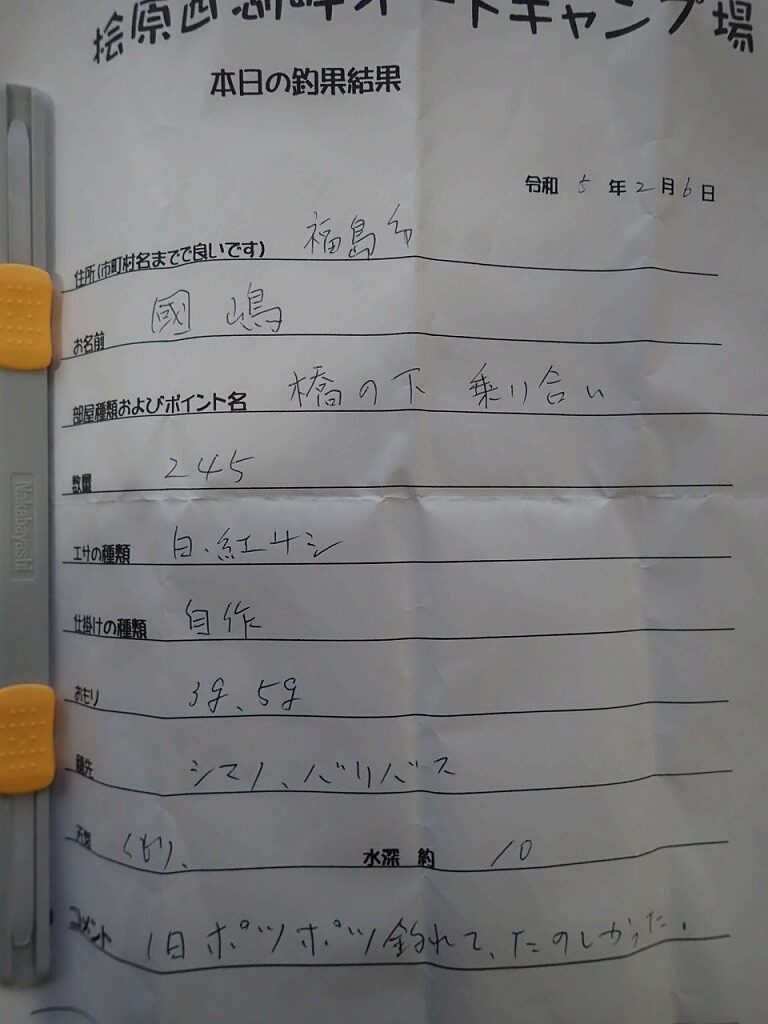 桧原西湖畔オートキャンプ場
本日の釣果結果
令和 5 年 2 月 6 日
住所(市町村名までで良いです) 福島市
お名前 國嶋
部屋種類およびポイント名 橋の下 乗り合い
数量 245
エサの種類 白、紅サシ
仕掛けの種類 自作
おもり 3g、5g
穂先 シマノ、バリバス
天気 くもり、 水深 約 10
コメント 1日ポツポツ釣れて、たのしかった。
Nakabayashi